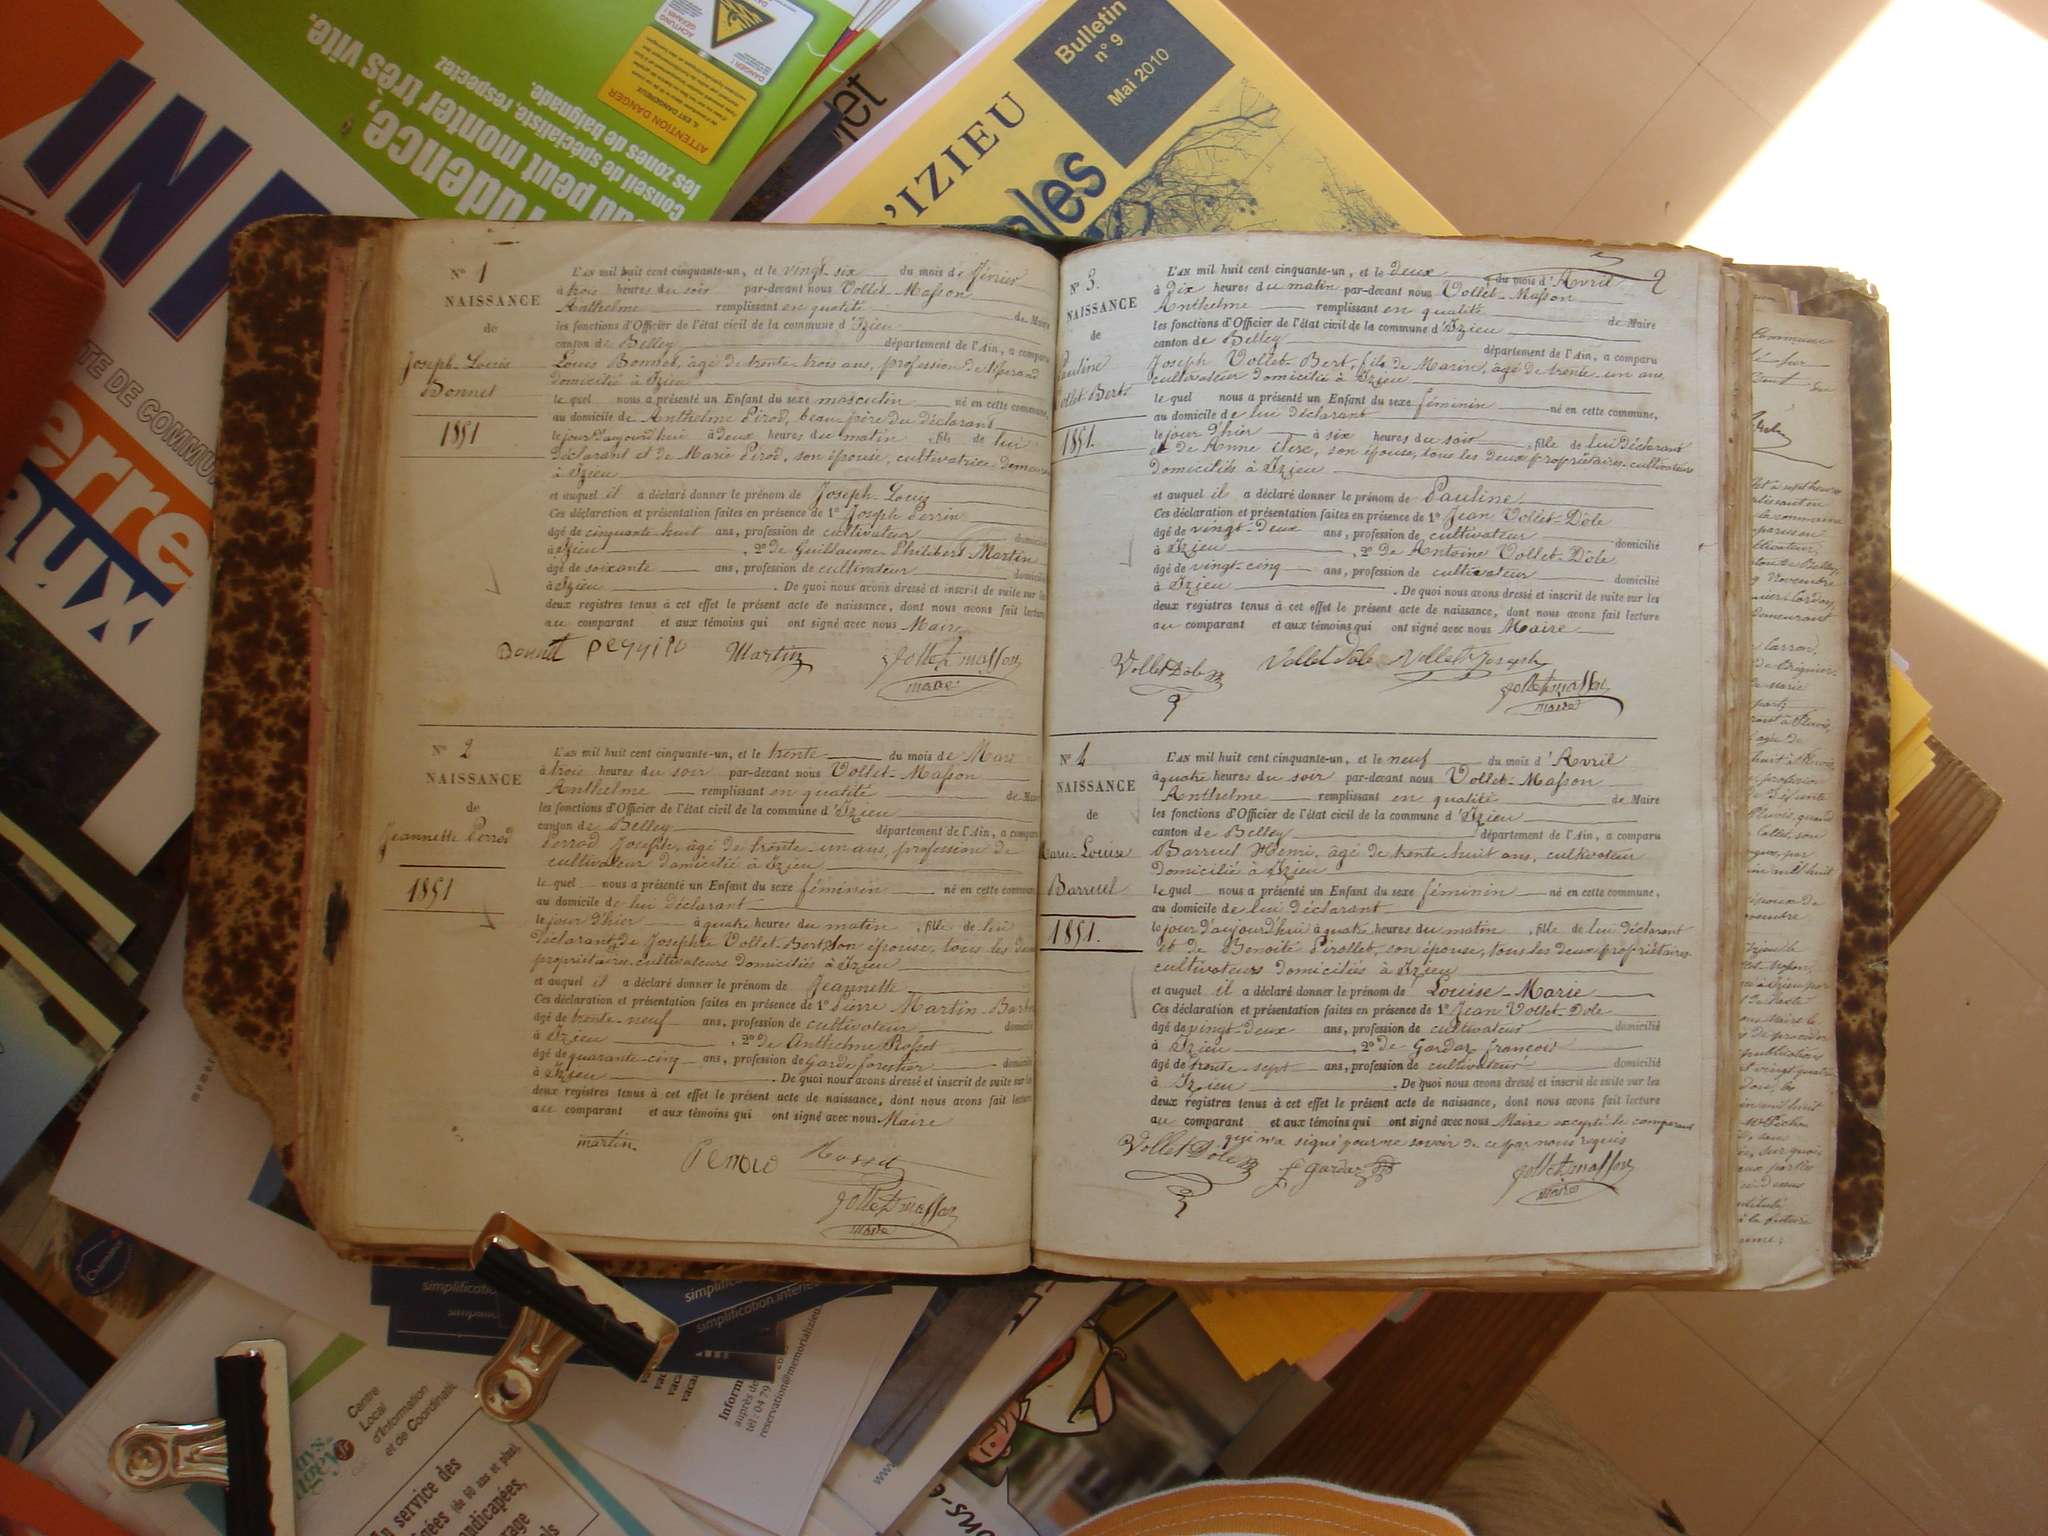 N° 1
NAISSANCE
de
Joseph-Louis
Bonnet
1851
L'AN mil huit cent cinquante-un, et le vingt-six du mois de Février
à trois heures du soir par-devant nous Vollet-Masson
Anthelme remplissant en qualité de Maire
les fonctions d'Officier de l'état civil de la commune d'Izieu
canton de Belley département de l'Ain, a comparu
Louis Bonnet, âgé de trente trois ans, profession de
domicilié à Izieu
le quel nous a présenté un Enfant du sexe masculin né en cette commune,
au domicile de Anthelme Pirod, beau père du déclarant
le jour d'aujourd'hui à deux heures du matin, fils de lui
déclarant et de Marie Pirod, son épouse, cultivatrice
à Izieu
et auquel il a déclaré donner le prénom de Joseph-Louis
Ces déclaration et présentation faites en présence de 1° Joseph Perrin
âgé de cinquante huit ans, profession de cultivateur domicilié
à Izieu, 2° de Guillaume Philibert Martin
âgé de soixante ans, profession de cultivateur domicilié
à Izieu. De quoi nous avons dressé et inscrit de suite sur les
deux registres tenus à cet effet le présent acte de naissance, dont nous avons fait lecture
au comparant et aux témoins qui ont signé avec nous Maire
Bonnet Martin
maire
N° 2
NAISSANCE
de
Jeannette Perrod
1851
L'AN mil huit cent cinquante-un, et le trente du mois de Mars
à trois heures du soir par-devant nous Vollet-Masson
Anthelme remplissant en qualité de Maire
les fonctions d'Officier de l'état civil de la commune d'Izieu
canton de Belley département de l'Ain, a comparu
Perrod Joseph, âgé de trente-un ans, profession de
cultivateur domicilié à Izieu
le quel nous a présenté un Enfant du sexe féminin né en cette commune,
au domicile de lui déclarant
le jour d'hier à quatre heures du matin, fille de lui
déclarant, de Josephte Vollet-Bert, son épouse, tous les deux
propriétaires-cultivateurs domiciliés à Izieu
et auquel il a déclaré donner le prénom de Jeannette
Ces déclaration et présentation faites en présence de 1° Pierre Martin-Barbe
âgé de trente-neuf ans, profession de cultivateur domicilié
à Izieu, 2° de Anthelme Rosset
âgé de quarante-cinq ans, profession de Garde forestier domicilié
à Izieu. De quoi nous avons dressé et inscrit de suite sur les
deux registres tenus à cet effet le présent acte de naissance, dont nous avons fait lecture
au comparant et aux témoins qui ont signé avec nous Maire
martin Perrod Rosset
maire
2
N° 3.
NAISSANCE
de
Pauline
Vollet-Bert
1851.
L'AN mil huit cent cinquante-un, et le deux du mois d'Avril
à dix heures du matin par-devant nous Vollet-Masson
Anthelme remplissant en qualité de Maire
les fonctions d'Officier de l'état civil de la commune d'Izieu
canton de Belley département de l'Ain, a comparu
Joseph Vollet-Bert, fils de Marin, âgé de trente-un ans,
cultivateur domicilié à Izieu
le quel nous a présenté un Enfant du sexe féminin né en cette commune,
au domicile de lui déclarant
le jour d'hier à six heures du soir, fille de lui déclarant
et de Anne Elise, son épouse, tous les deux propriétaires-cultivateurs
domiciliés à Izieu
et auquel il a déclaré donner le prénom de Pauline
Ces déclaration et présentation faites en présence de 1° Jean Vollet-Dôle
âgé de vingt-deux ans, profession de cultivateur domicilié
à Izieu, 2° de Antoine Vollet-Dôle
âgé de vingt-cinq ans, profession de cultivateur domicilié
à Izieu. De quoi nous avons dressé et inscrit de suite sur les
deux registres tenus à cet effet le présent acte de naissance, dont nous avons fait lecture
au comparant et aux témoins qui ont signé avec nous Maire
Vollet Dôle Vollet Dôle Vollet Joseph
maire
N° 4
NAISSANCE
de
Marie-Louise
Barruel
1851.
L'AN mil huit cent cinquante-un, et le neuf du mois d'Avril
à quatre heures du soir par-devant nous Vollet-Masson
Anthelme remplissant en qualité de Maire
les fonctions d'Officier de l'état civil de la commune d'Izieu
canton de Belley département de l'Ain, a comparu
Barruel Henri, âgé de trente-huit ans, cultivateur
domicilié à Izieu
le quel nous a présenté un Enfant du sexe féminin né en cette commune,
au domicile de lui déclarant
le jour d'aujourd'hui à quatre heures du matin, fille de lui déclarant
et de Benoîte Pirollet, son épouse, tous les deux propriétaires-
cultivateurs domiciliés à Izieu
et auquel il a déclaré donner le prénom de Louise-Marie
Ces déclaration et présentation faites en présence de 1° Jean Vollet-Dôle
âgé de vingt-deux ans, profession de cultivateur domicilié
à Izieu, 2° de Gardaz françois
âgé de trente-sept ans, profession de cultivateur domicilié
à Izieu. De quoi nous avons dressé et inscrit de suite sur les
deux registres tenus à cet effet le présent acte de naissance, dont nous avons fait lecture
au comparant et aux témoins qui ont signé avec nous Maire excepté le comparant
qui n'a signé pour ne savoir de ce par nous requis
Vollet Dôle f gardaz
maire
Bulletin
n° 9
Mai 2010
D'IZIEU
INF
rudence,
au peut monter très vite.
conseil de spécialiste, respectez
les zones de baignade.
ATTENTION DANGER
DANGER !
ACHTUNG
GEFAHR
TE DE COMMU
erre
aux
simplification
simplification.interieu
Centre
Local
d'Information
et de Coordination
n service des
gées (de 60 ans et plus),
ndicapées,
Inform
auprès de
tél : 04 79
reservation@memorializieu